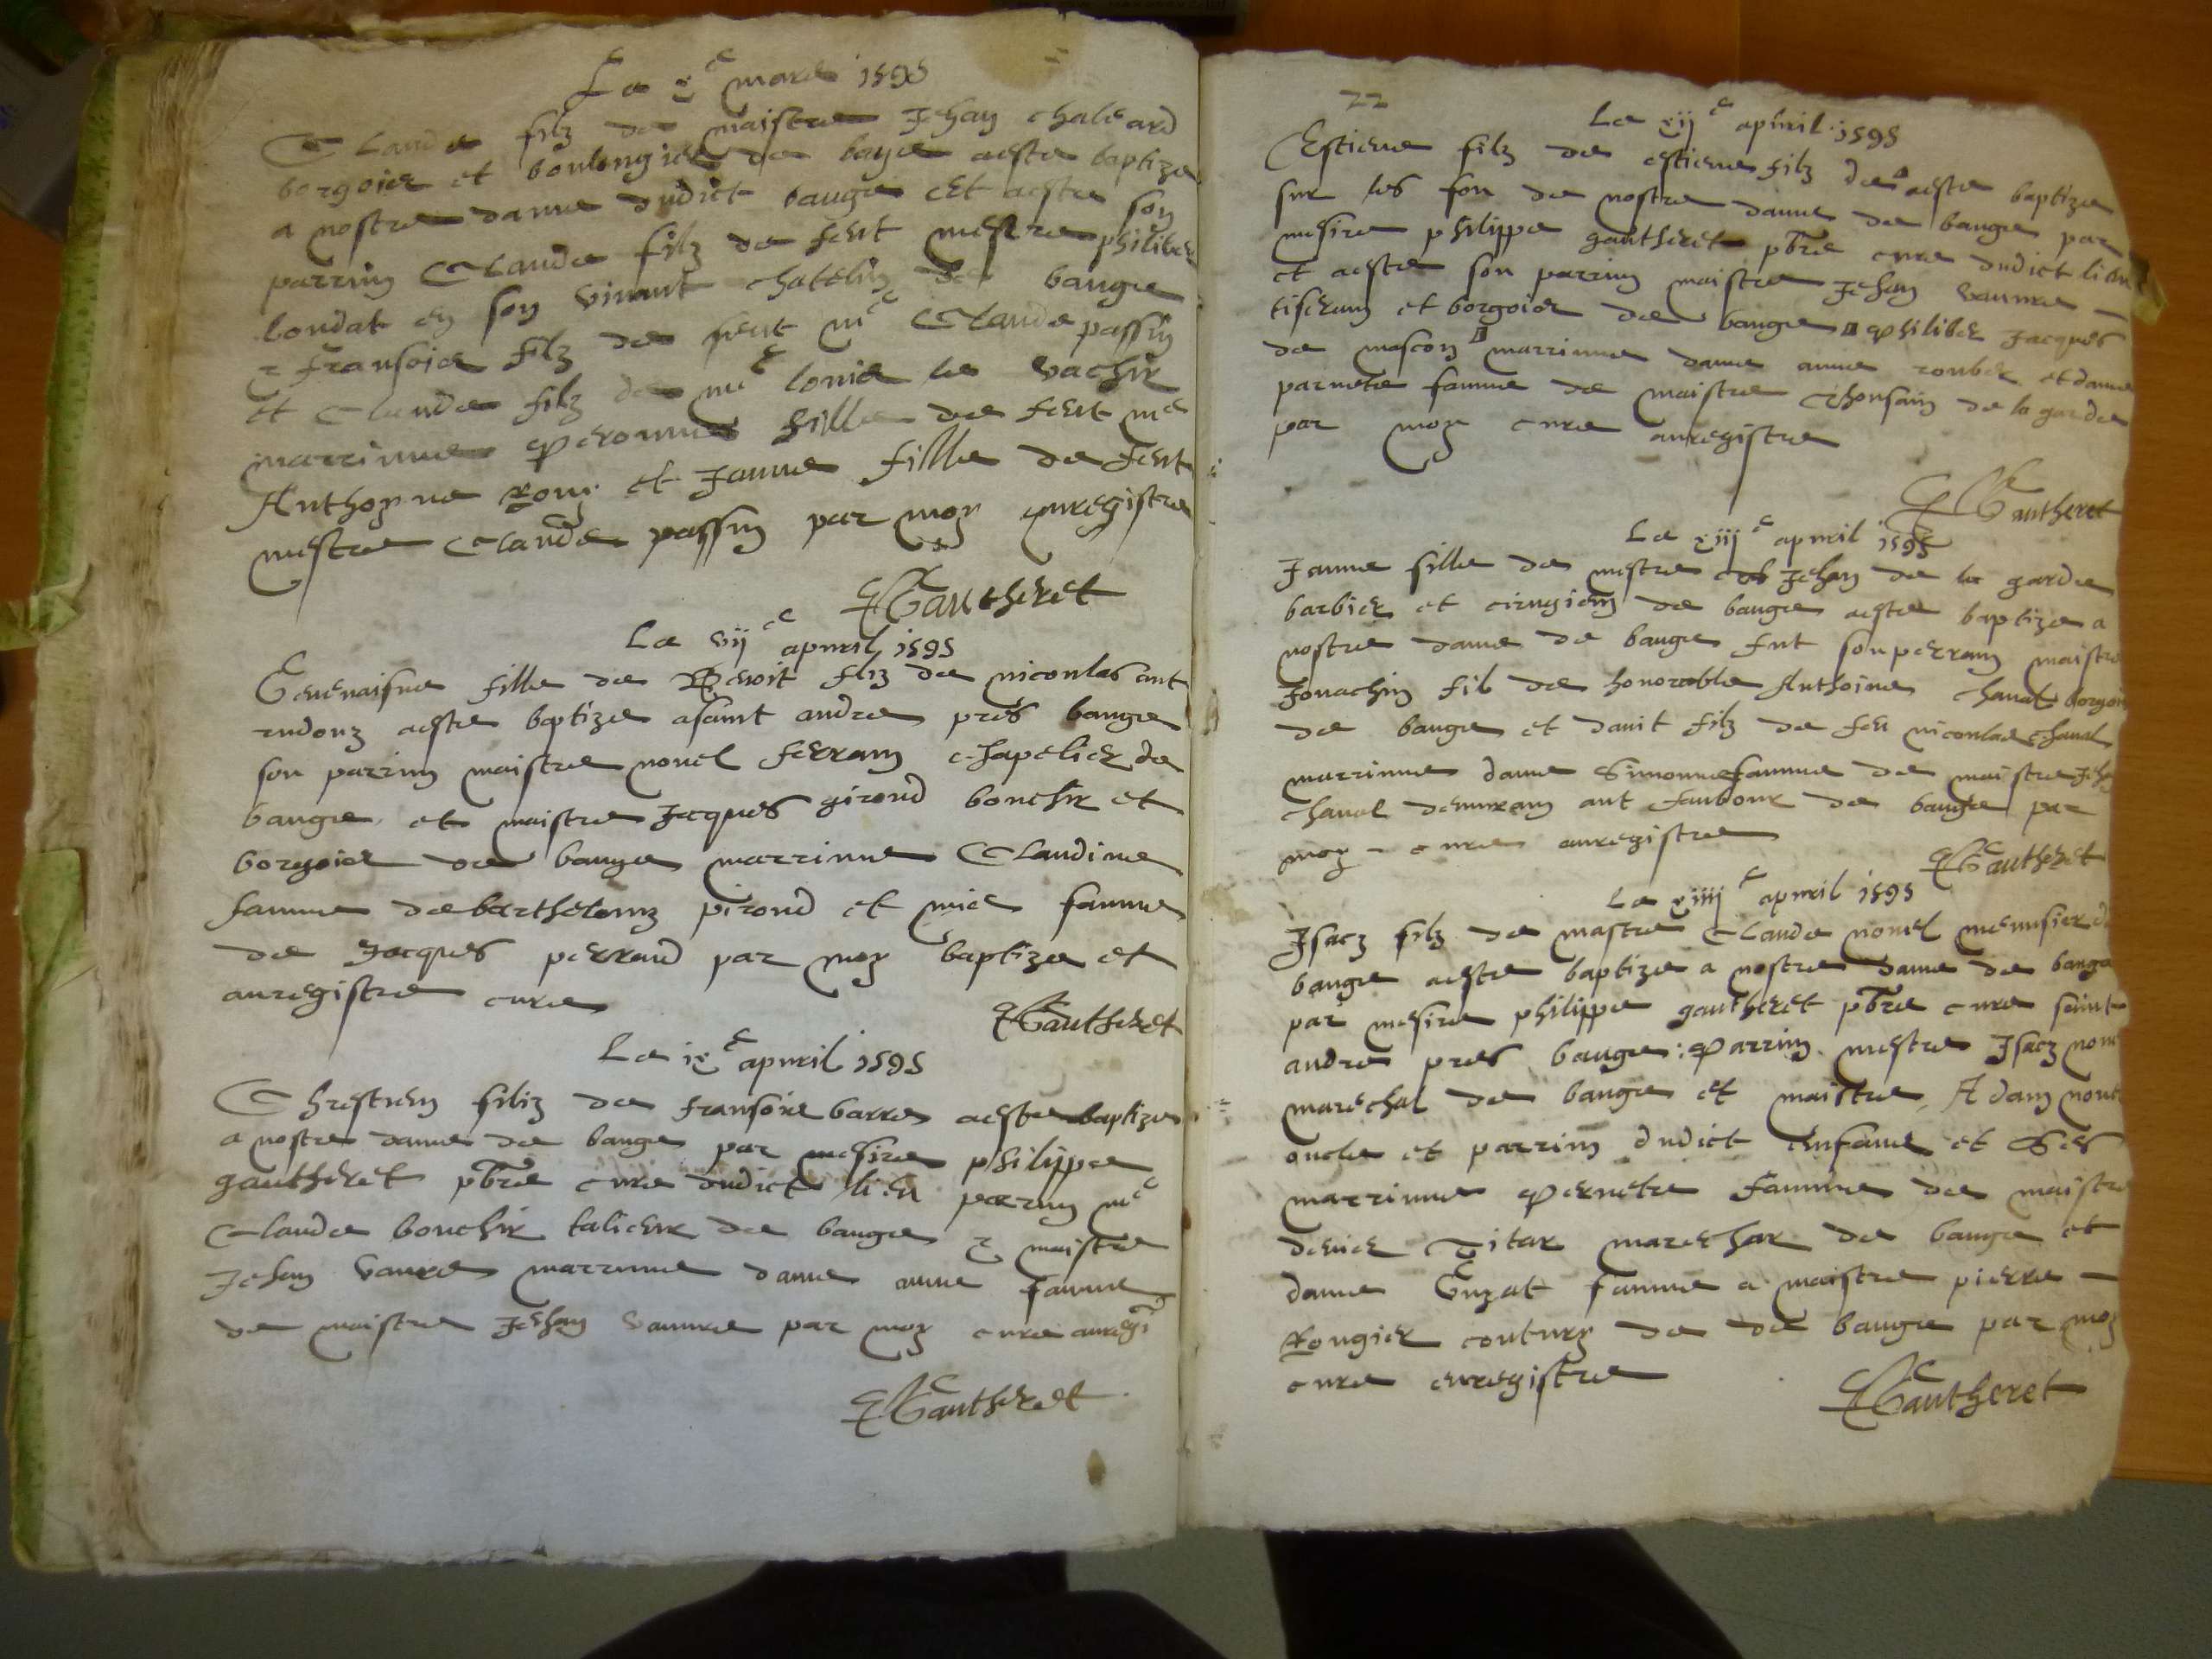 Le x e mars 1595
Claude filz de maistre Jehan chaleard
borgoies et boulongier de bauge aeste baptize
a nostre dame dudict bauge Et aeste son
parrin Claude filz de feut mestre philiber
londat en son vivant chatelin de bauge
& fransois filz de feut me Claude passin
et Claude filz de me lonis le vachir
marrinne Peronne fille de feut me
Anthoyne Rous et Janne fille de feut
mestre Claude passin par moy enregistre
PGautheret
Le vij e apuril 1595
Genevaisne fille de Benoit filz de nicoulas ant
rudonz aeste baptize asaint andre pres bauge
son parrin maistre nouel ferram chapelier de
bauge et maistre Jacques girond bouchir et
borgoies de bauge marrinne Claudine
famme debarthelomy pirond et mie famme
de Jacques perraud par moy baptize et
anregistre cure
PGautheret
Le ix e apuril 1595
Chrestien filiz de fransois barres aeste baptize
a nostre dame de bauge par mesire philippe
gautheret pbre cure dudict lieu parrin me
Claude bouchir talieur de bauge & maistre
Jehan vaure marrinne dame anne famme
de maistre Jehan vaunre par moy cure anregi
PGautheret
22
Le xij e apuril 1595
Estiene filz de estiene filz de aeste baptize
sur les fon de nostre dame de bauge par
mesire philippe gautheret pbre cure dudict lieu
et aeste son parrin maistre Jehan vaunre
tiseram et borgoies de bauge philiber Jacques
de mascon marrinne dame anne rouber et dame
parnete famme de maistre Thonsain de la garde
par moy cure anregistre
PGautheret
Le xiij e apuril 1595
Janne fille de mestre Jehan de la garde
barbier et cirugien de bauge aeste baptize a
nostre dame de bauge fut son perram maistre
Jouachin filz de honorable Anthoine chanal borgoi
de bauge et davit filz de feu nicoulas chanal
marrinne dame Simonne famme de maistre Jeha
chanal demuram aut faubour de bauge par
moy cure anregistre
PGautheret
Le xiiij e apuril 1595
Isacz filz de mastre Claude nouel menusier d
bauge aeste baptize a nostre dame de bauge
par mesire philippe gautheret pbre cure saint
andre pres bauge : Parrin mestre Isacz nou
marechal de bauge et maistre Adam noue
oncle et parrin dudict enfant et Ses
marrinne Pernete famme de maistre
denier Titar marechar de bauge et
dame famme a maistre pierre
Rougier couturz de de bauge par moy
cure enregistre
PGautheret